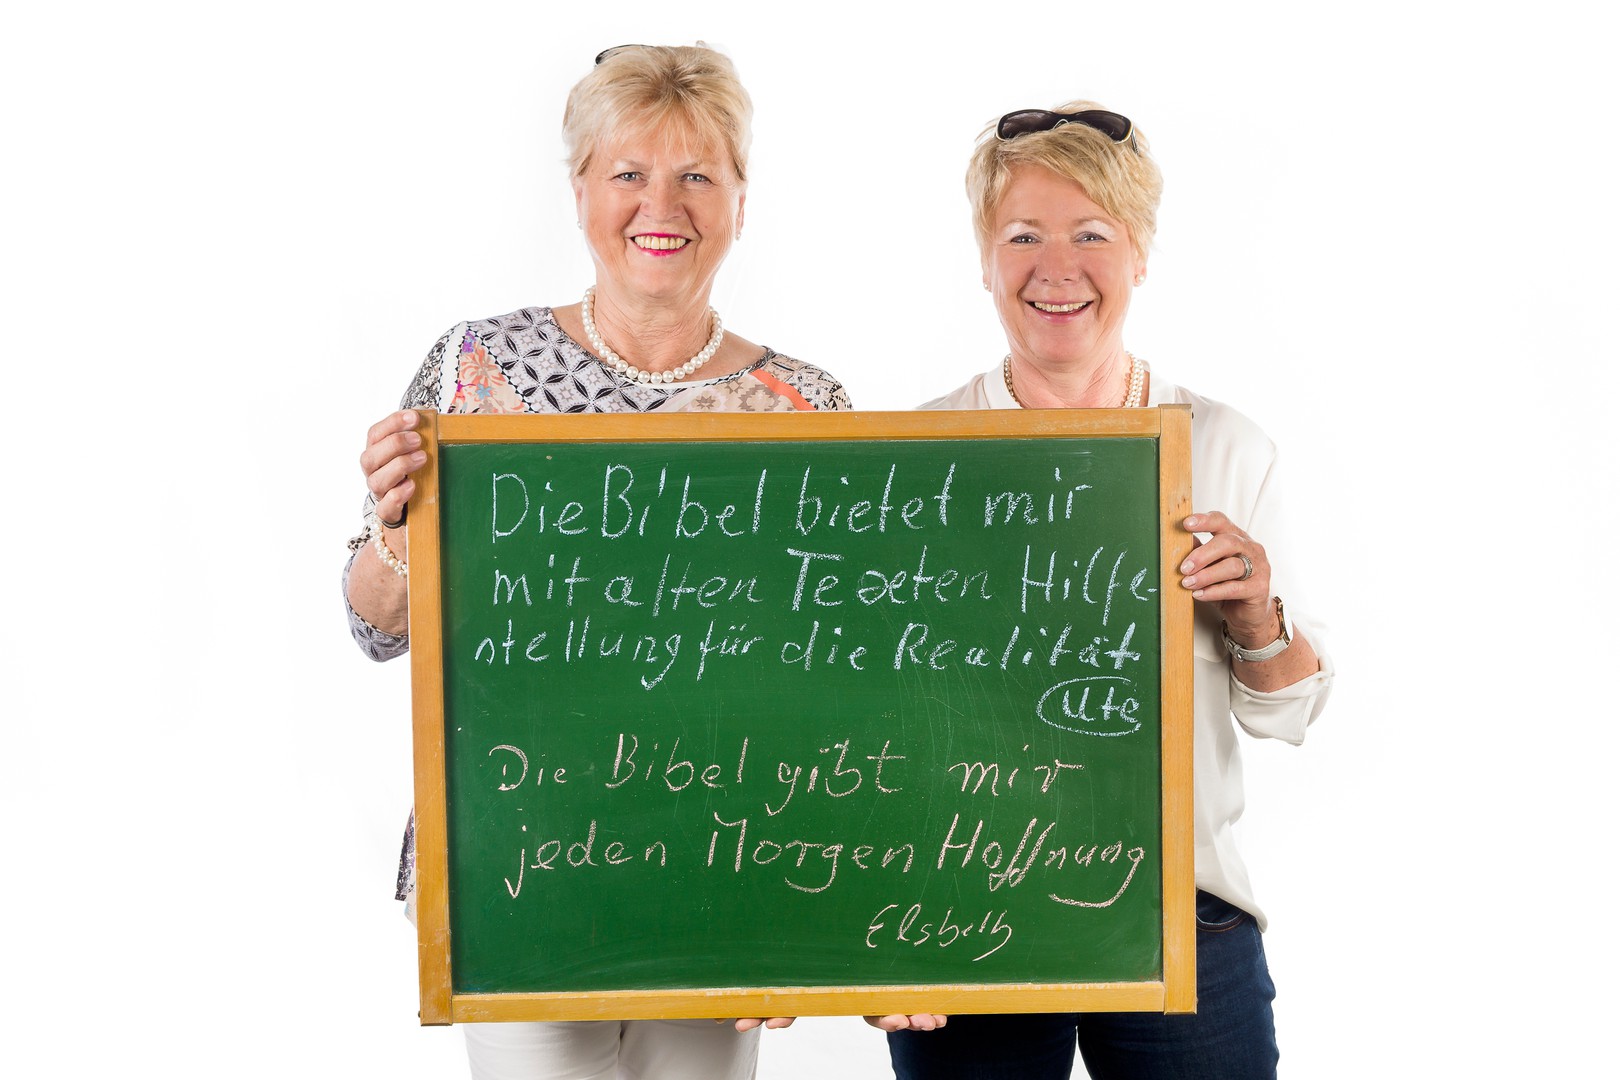 Die Bibel bietet mir
mit alten Texten Hilfe-
stellung für die Realität
Ute
Die Bibel gibt mir
jeden Morgen Hoffnung
Elsbeth